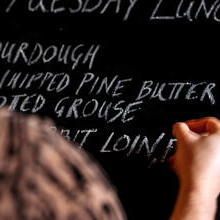 TUESDAY LUNC
OURDOUGH
WHIPPED PINE BUTTER
OTED GROUSE
BIT LOIN